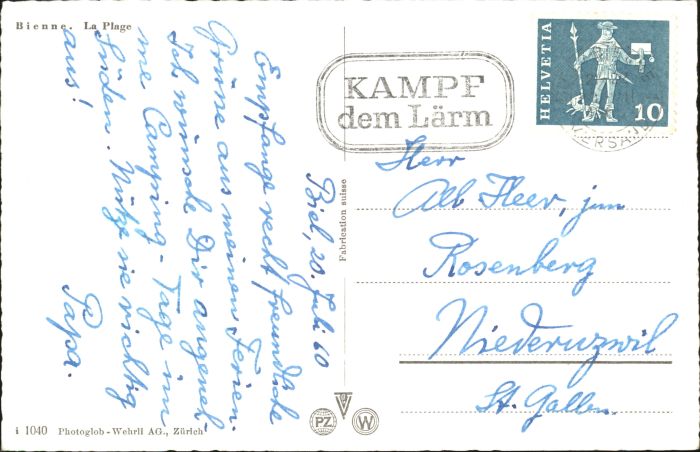 Bienne. La Plage
Biel, 20. Juli 60
Empfange recht freundliche
Grüsse aus meinen Ferien.
Ich wünsche Dir angeneh-
me Camping-Tage im
Süden. Nütze sie richtig
aus!
Papa.
i 1040 Photoglob-Wehrli AG., Zürich
Fabrication suisse
PZ
W
KAMPF
dem Lärm
HELVETIA
10
Herr
Alb Heer, jun
Rosenberg
Niederuzwil
St. Gallen.